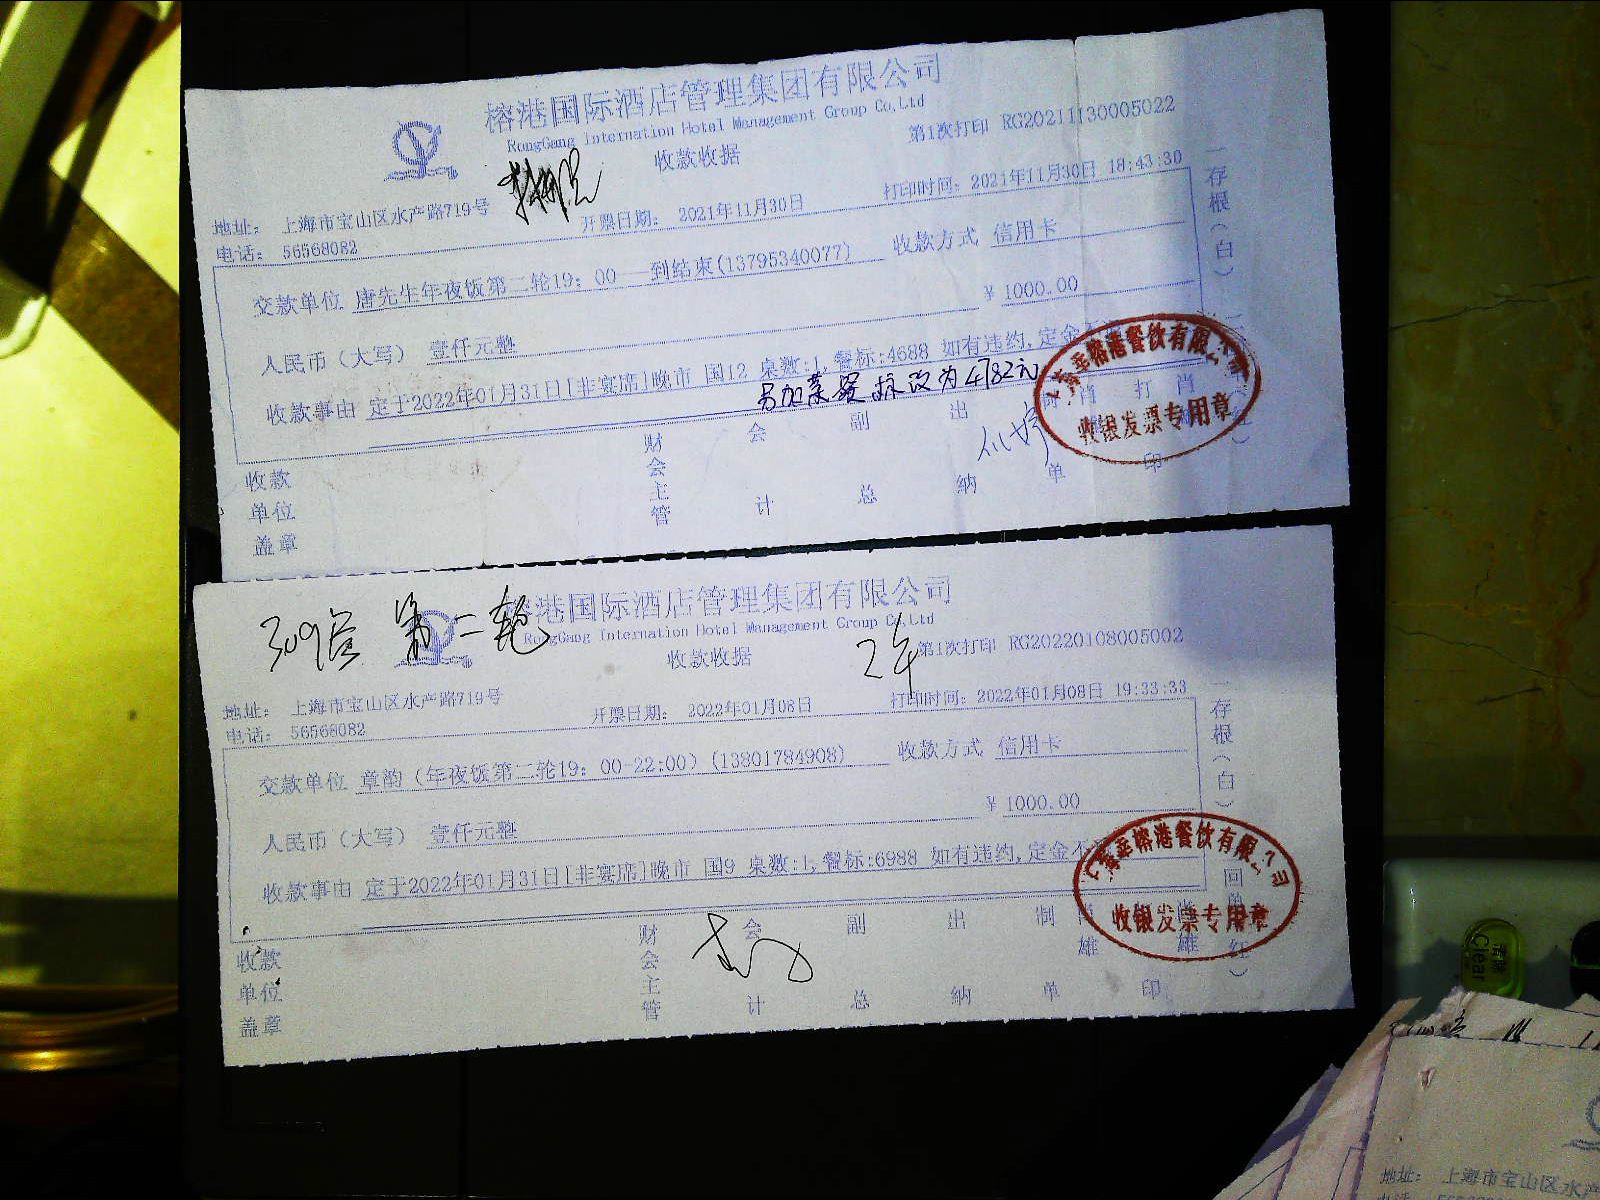 榕港国际酒店管理集团有限公司
RongGang Internation Hotel Management Group Co,Ltd
收款收据
第1次打印 RG20211130005022
地址： 上海市宝山区水产路719号
电话： 56568082
开票日期： 2021年11月30日
打印时间： 2021年11月30日 18:43:30
交款单位 唐先生年夜饭第二轮19：00——到结束(13795340077)
收款方式 信用卡
人民币（大写） 壹仟元整
¥ 1000.00
收款事由 定于2022年01月31日[非宴席]晚市 国12 桌数:1,餐标:4688 如有违约,定金不
另加菜 餐标改为4782元
收款单位盖章
财会主管
会计
副总
出纳
单
打印
存根（白）
榕港餐饮有限公司
收银发票专用章
309房 第二轮
榕港国际酒店管理集团有限公司
RongGang Internation Hotel Management Group Co,Ltd
收款收据
第1次打印 RG20220108005002
地址： 上海市宝山区水产路719号
电话： 56568082
开票日期： 2022年01月08日
打印时间： 2022年01月08日 19:33:33
交款单位 章韵（年夜饭第二轮19：00-22:00）(13801784908)
收款方式 信用卡
人民币（大写） 壹仟元整
¥ 1000.00
收款事由 定于2022年01月31日[非宴席]晚市 国9 桌数:1,餐标:6988 如有违约,定金不
收款单位盖章
财会主管
会计
副总
出纳
制单
印
存根（白）
榕港餐饮有限公司
收银发票专用章
清除
Clear
地址： 上海市宝山区水产